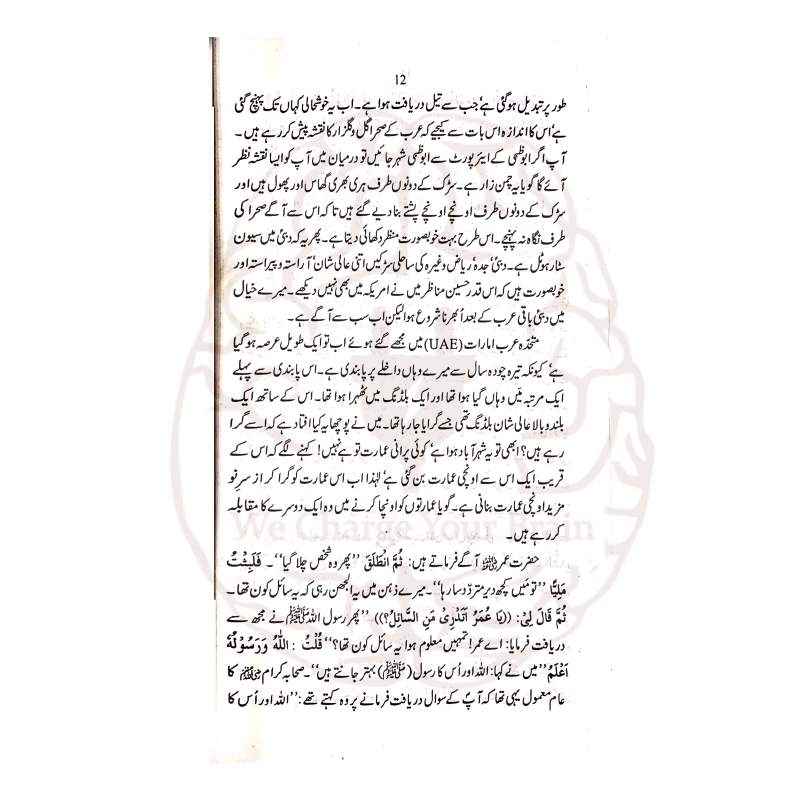 12
طور پر تبدیل ہوگئی ہے‘ جب سے تیل دریافت ہوا ہے۔ اب یہ خوشحالی کہاں تک پہنچ گئی
ہے‘ اس کا اندازہ اس بات سے کیجیے کہ عرب کے صحرا گل وگلزار کا نقشہ پیش کر رہے ہیں۔
آپ اگر ابوظبی کے ایئرپورٹ سے ابوظبی شہر جائیں تو درمیان میں آپ کو ایسا نقشہ نظر
آئے گا گویا یہ چمن زار ہے۔ سڑک کے دونوں طرف ہری بھری گھاس اور پھول ہیں اور
سڑک کے دونوں طرف اونچے اونچے پشتے بنا دیے گئے ہیں تاکہ اس سے آگے صحرا کی
طرف نگاہ نہ پہنچے۔ اس طرح بہت خوبصورت منظر دکھائی دیتا ہے۔ پھر یہ کہ دبئی میں سیون
سٹار ہوٹل ہے۔ دبئی‘ جدہ‘ ریاض وغیرہ کی ساحلی سڑکیں اتنی عالی شان‘ آراستہ و پیراستہ اور
خوبصورت ہیں کہ اس قدر حسین مناظر میں نے امریکہ میں بھی نہیں دیکھے۔ میرے خیال
میں دبئی باقی عرب کے بعد اُبھرنا شروع ہوا لیکن اب سب سے آگے ہے۔
متحدہ عرب امارات (UAE) میں مجھے گئے ہوئے اب تو ایک طویل عرصہ ہو گیا
ہے‘ کیونکہ تیرہ چودہ سال سے میرے وہاں داخلے پر پابندی ہے۔ اس پابندی سے پہلے
ایک مرتبہ میں وہاں گیا ہوا تھا اور ایک بلڈنگ میں ٹھہرا ہوا تھا۔ اس کے ساتھ ایک
بلند و بالا عالی شان بلڈنگ تھی جسے گرایا جا رہا تھا۔ میں نے پوچھا یہ کیا افتاد ہے کہ اسے گرا
رہے ہیں؟ ابھی تو یہ شہر آباد ہوا ہے‘ کوئی پرانی عمارت تو ہے نہیں! کہنے لگے کہ اس کے
قریب ایک اس سے اونچی عمارت بن گئی ہے‘ لہٰذا اب اس عمارت کو گرا کر از سرِ نو
مزید اونچی عمارت بنانی ہے۔ گویا عمارتوں کو اونچا کرنے میں وہ ایک دوسرے کا مقابلہ
کر رہے ہیں۔
We Charge Your Brain
حضرت عمر رضی اللہ عنہ آگے فرماتے ہیں: ثُمَّ انْطَلَقَ ’’پھر وہ شخص چلا گیا‘‘۔ فَلَبِثْتُ
مَلِيًّا ’’تو میں کچھ دیر متردّد سا رہا‘‘۔ میرے ذہن میں یہ الجھن رہی کہ یہ سائل کون تھا۔
ثُمَّ قَالَ لِيْ: ((يَا عُمَرُ اَتَدْرِيْ مَنِ السَّائِلُ؟)) ’’پھر رسول اللہ ﷺ نے مجھ سے
دریافت فرمایا: اے عمر! تمہیں معلوم ہوا یہ سائل کون تھا؟‘‘ قُلْتُ : اَللّٰهُ وَرَسُوْلُهٗ
اَعْلَمُ ’’میں نے کہا: اللہ اور اُس کا رسول (ﷺ) بہتر جانتے ہیں‘‘۔ صحابہ کرام رضی اللہ عنہم کا
عام معمول یہی تھا کہ آپؐ کے سوال دریافت فرمانے پر وہ کہتے تھے: ’’اللہ اور اُس کا